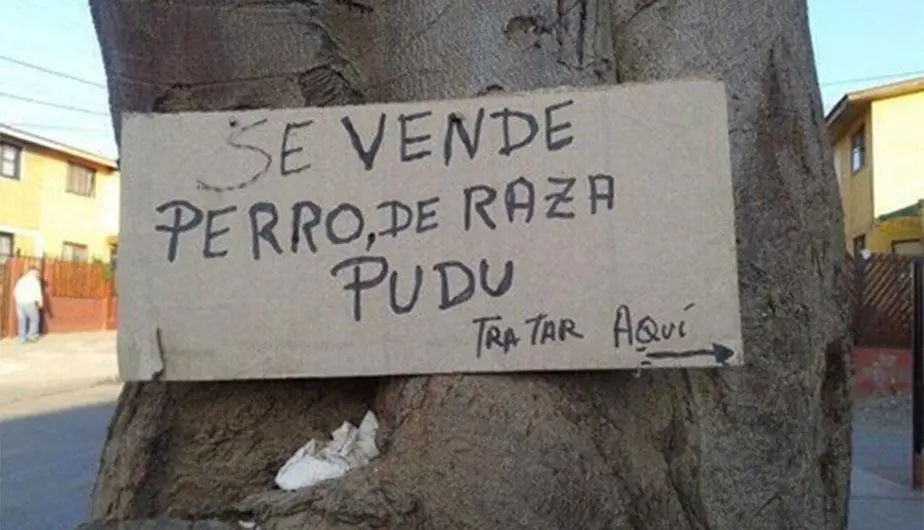 SE VENDE
PERRO, DE RAZA
PUDU
TRATAR AQUÍ